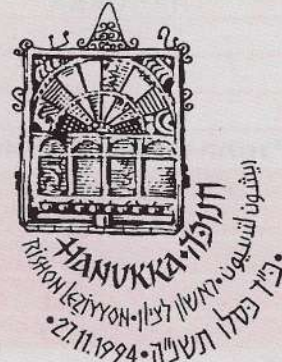 HANUKKA • חנוכה
RISHON LEZIYYON • ראשון לציון • ريشون لتسيون
• 27.11.1994 • כ"ד כסלו תשנ"ה •